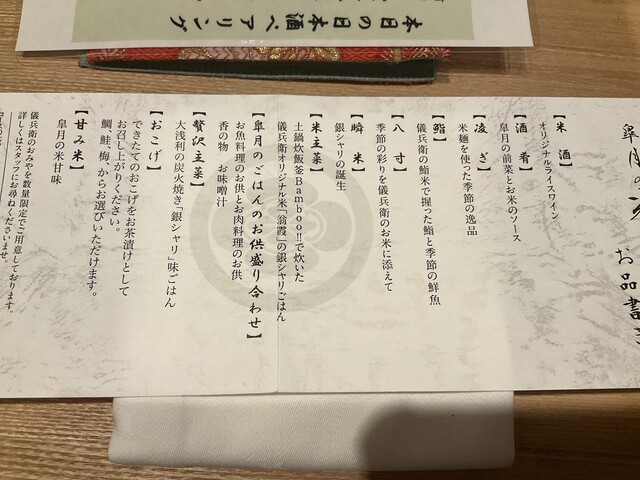 本日の日本酒ペアリング
皐月の
お品書き
【米 酒】
オリジナルライスワイン
【酒 肴】
皐月の前菜とお米のソース
【凌 ぎ】
米麺を使った季節の逸品
【鮨】
儀兵衛の鮨米で握った鮨と季節の鮮魚
【八 寸】
季節の彩りを儀兵衛のお米に添えて
【瞬 米】
銀シャリの誕生
【米主菜】
土鍋炊飯釜Bamboo!!で炊いた
儀兵衛オリジナル米「翁霞」の銀シャリごはん
【皐月のごはんのお供盛り合わせ】
お魚料理のお供とお肉料理のお供
香の物 お味噌汁
【贅沢主菜】
大浅利の炭火焼き「銀シャリ」味ごはん
【おこげ】
できたてのおこげをお茶漬けとして
お召し上がりください。
鯛、鮭、梅、からお選びいただけます。
【甘み米】
皐月の米甘味
儀兵衛のおみやを数量限定でご用意しております。
詳しくはスタッフにお尋ねくださいませ。